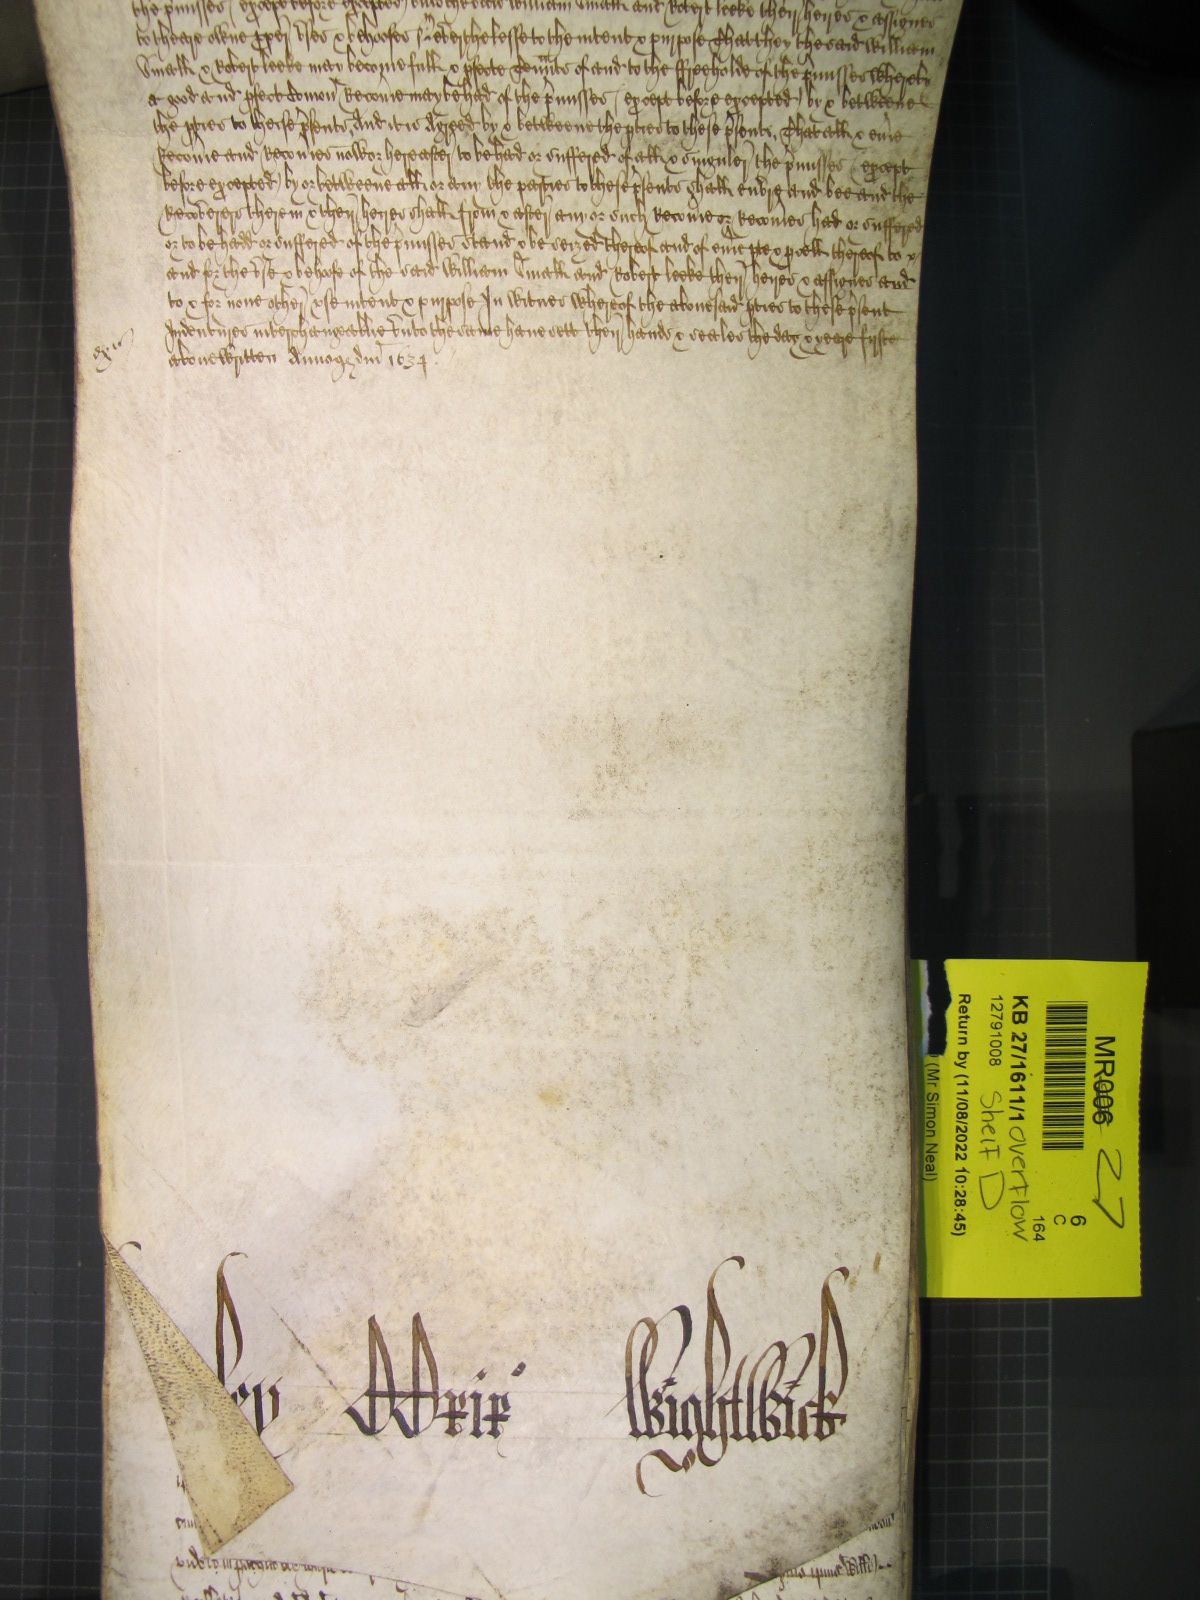 the p'misses (except before excepted) unto the said William Smalk and Robert leeke their heires & assignes
to theire owne pper uses & behoofes Neverthelesse to the intent & purpose That they the said William
Smalk & Robert leeke may become full & pfecte Ten'nts of and to the ffreeholde of the p'misses Whereby
a good and pfect Comon Recou'ie may be had of the p'misses (except before excepted) by & betweene
the pties to theise p'sents And it is Agreed by & betweene the pties to these p'sents, That all & eu'ie
Recou'ie and Recou'ies now or hereafter to be had or suffered of all & singuler the p'misses (except
before excepted) by or betweene all or any the parties to these p'sents shall enure and bee and the
Recoverers therein & their heires shall from & after any or such Recou'ie or Recou'ies had or suffered
or to be hadd or suffered of the p'misses stand & be seized thereof and of eu'ie pte & pcell thereof to &
and for the use & behoofe of the said William Smalk and Robert leeke their heires & assignes and
to & for none other use intent & purpose In witnes Whereof the abouesaid pties to these p'sent
Indentures interchangeablie unto the same haue sett their hands & seales the day & yeare firste
aboue written Annoq dni 1634.
ley xxix WightWick
MR006 27
6
C
164
KB 27/1611/1 overflow
12791008 Shelf D
Return by (11/08/2022 10:28:45)
(Mr Simon Neal)